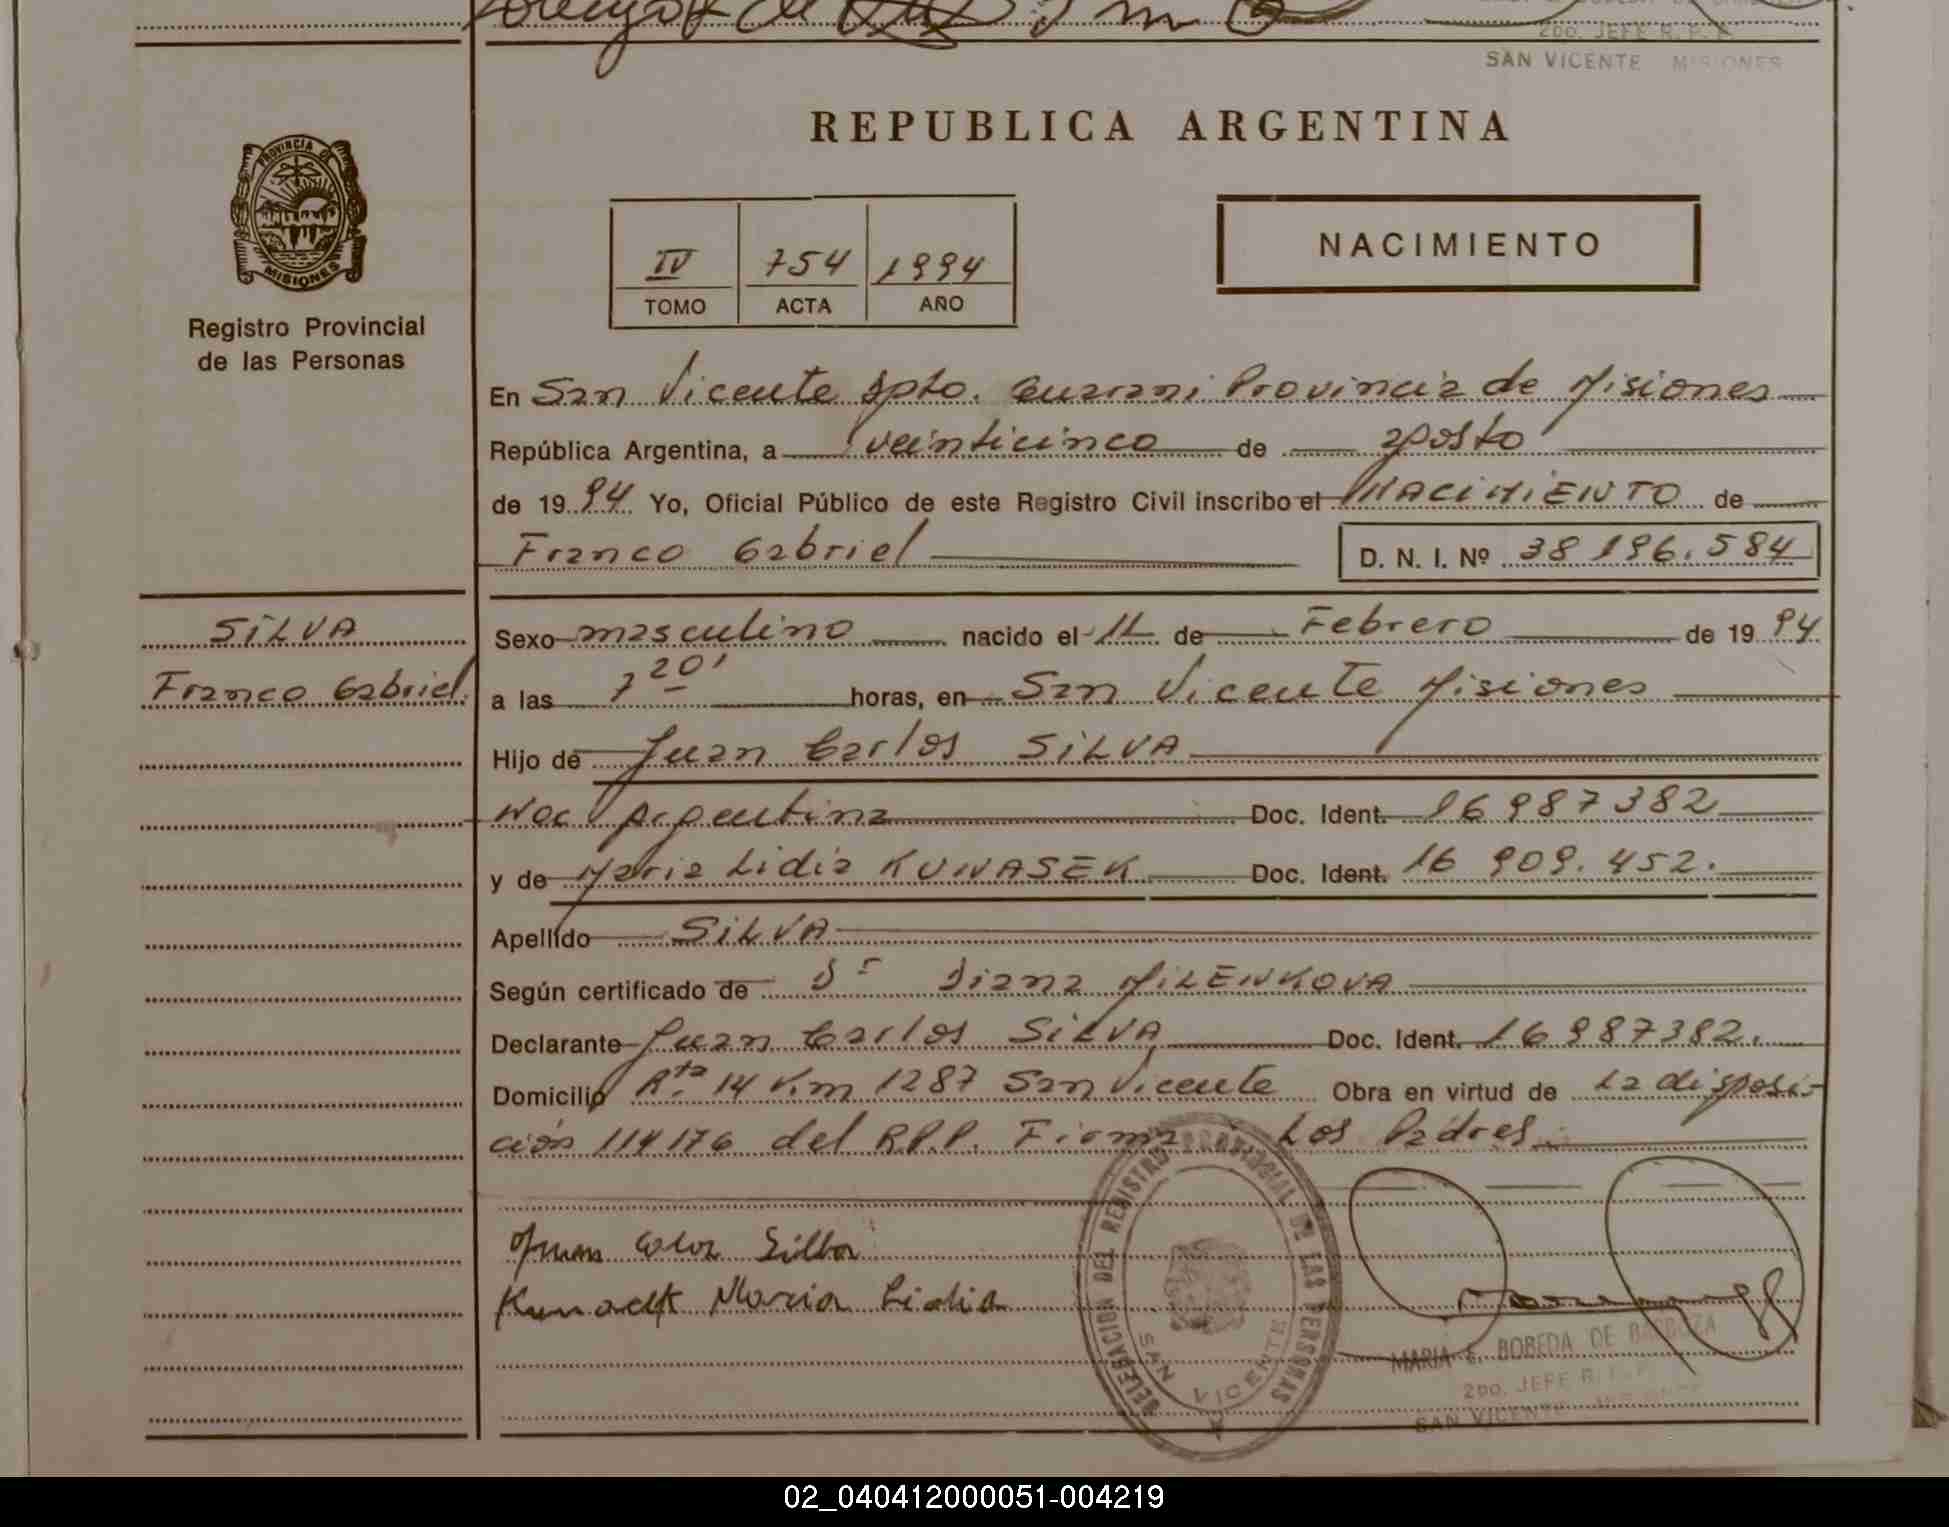 2do. JEFE R. P. P.
SAN VICENTE MISIONES
PROVINCIA DE
MISIONES
Registro Provincial
de las Personas
REPUBLICA ARGENTINA
IV 754 1994
TOMO ACTA AÑO
NACIMIENTO
En San Vicente Dpto. Guarani Provincia de Misiones
República Argentina, a veinticinco de agosto
de 1994 Yo, Oficial Público de este Registro Civil inscribo el NACIMIENTO de
Franco Gabriel D. N. I. Nº 38 196.584
SILVA
Franco Gabriel.
Sexo masculino nacido el 11 de Febrero de 1994
a las 7 20' horas, en San Vicente Misiones
Hijo de Juan Carlos SILVA
Nac Argentina Doc. Ident. 16987382
y de Maria Lidia KUNASEK Doc. Ident. 16 909.452.
Apellido SILVA
Según certificado de Dr Diana MILENKOVA
Declarante Juan Carlos SILVA Doc. Ident. 16987382.
Domicilio Rta 14 Km 1287 San Vicente Obra en virtud de La disposi-
ción 114176 del R.P.P. Firma Los Padres.
Maria Lidia
DELEGACION DEL REGISTRO PROVINCIAL DE LAS PERSONAS
SAN VICENTE
MARIA E. BOBEDA DE BARBOZA
2do. JEFE R. P. P.
SAN VICENTE MISIONES
02_040412000051-004219